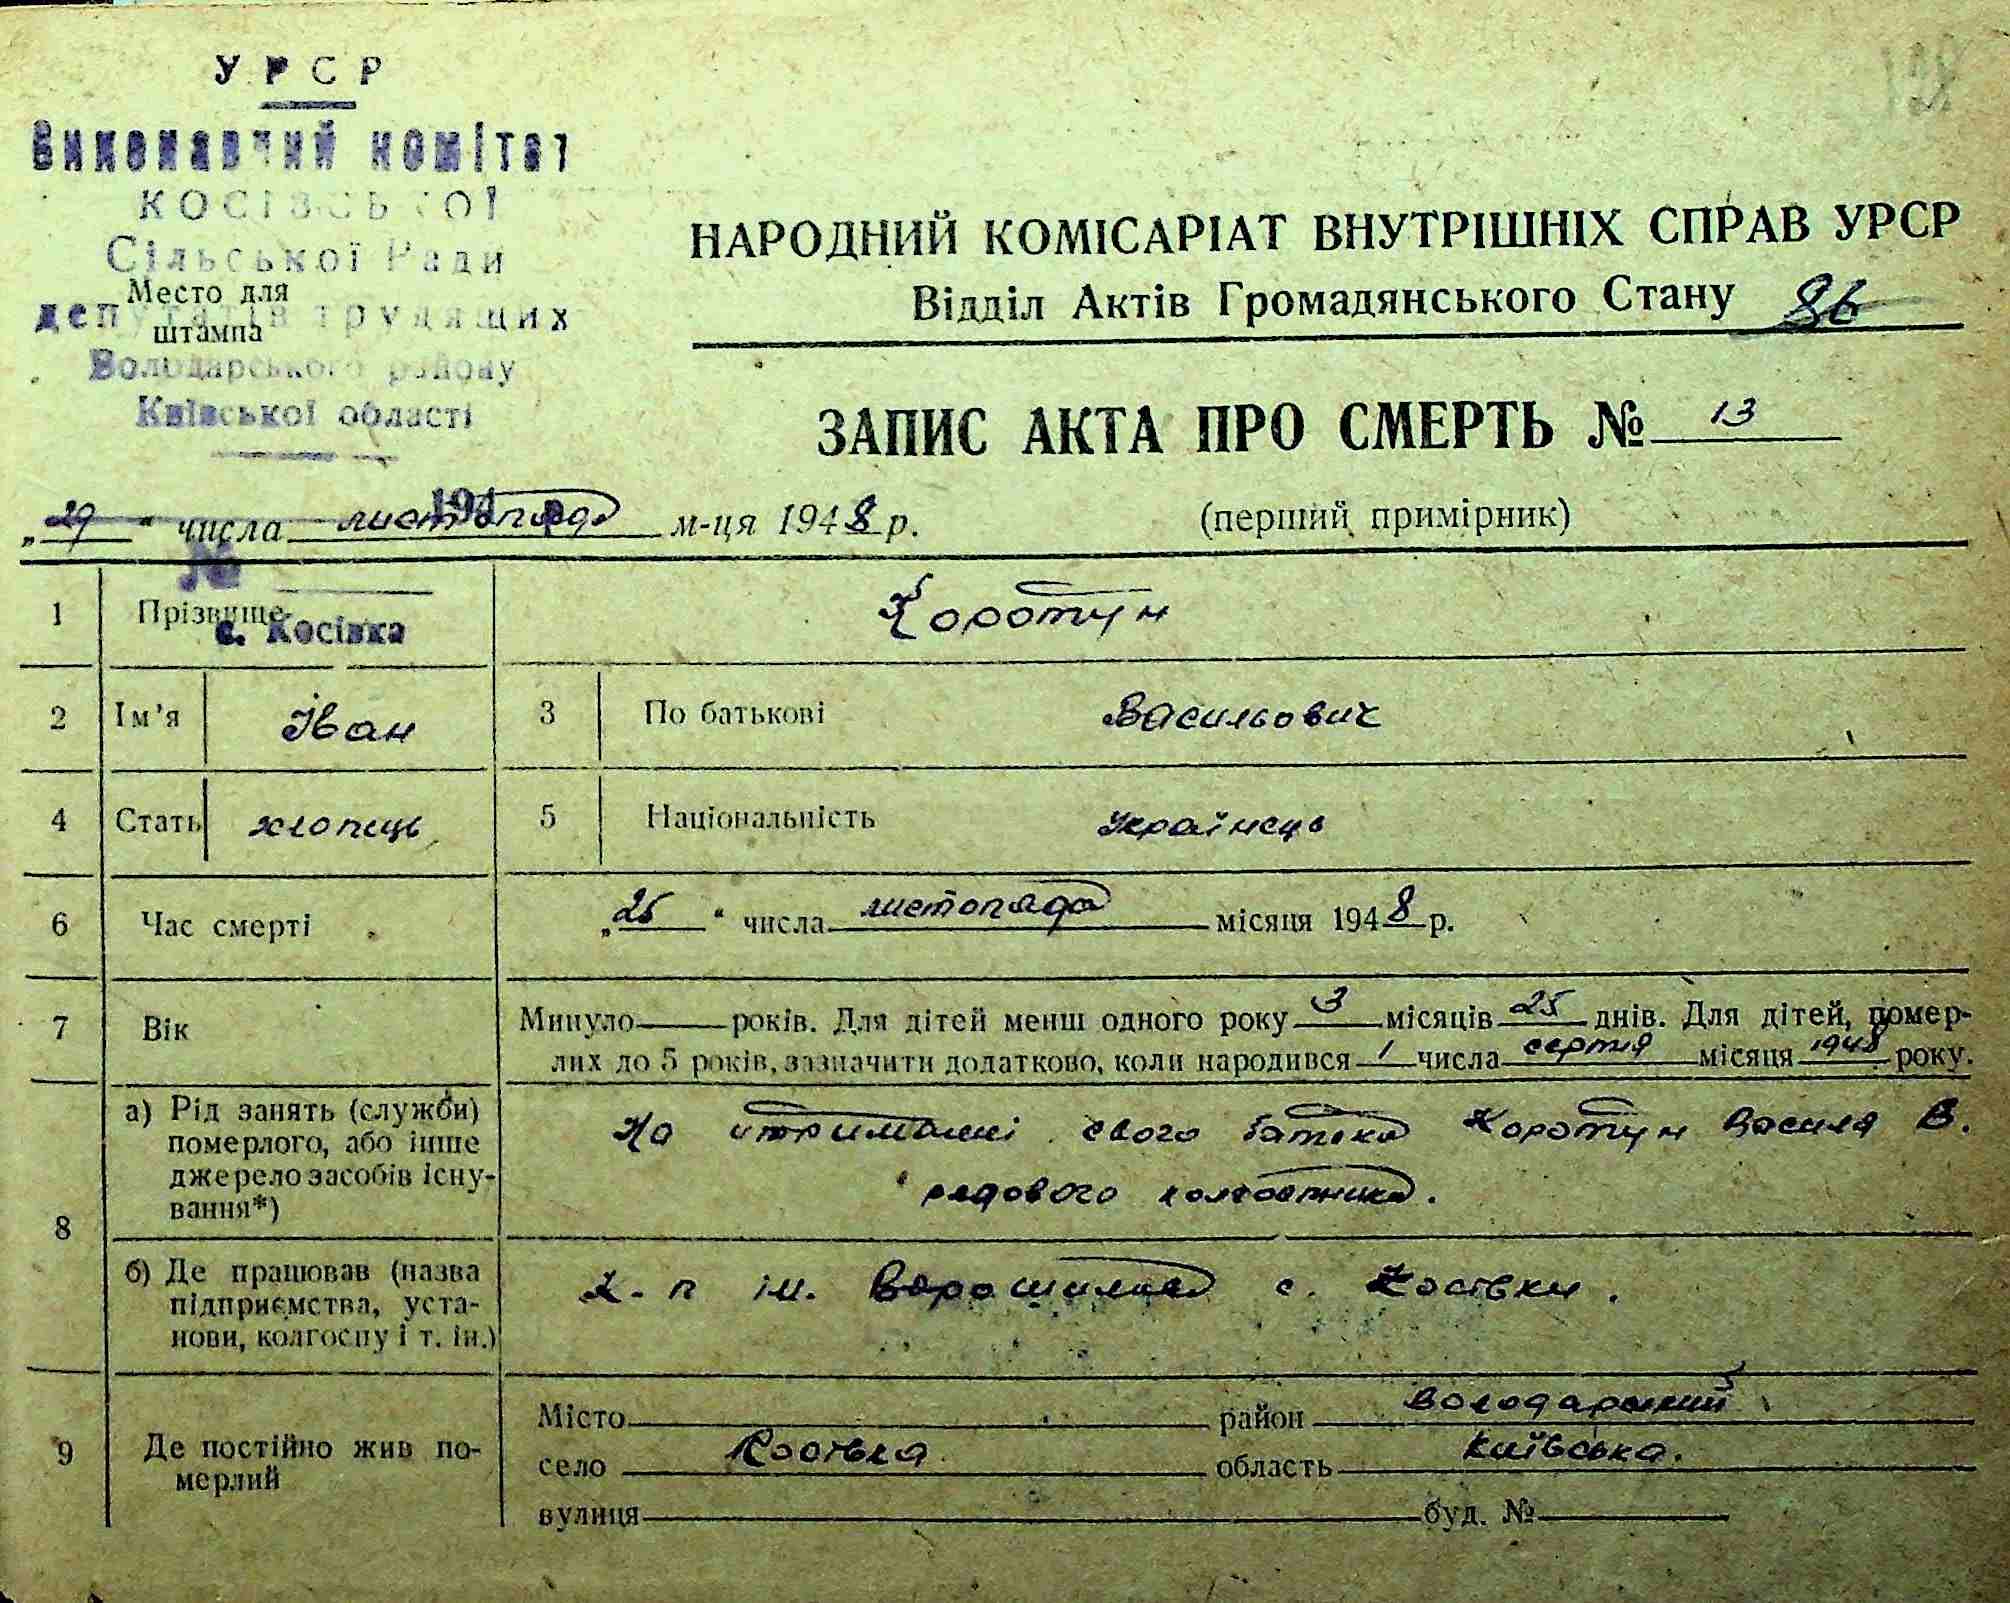 УРСР
Виконавчий комітет
КОСІВСЬКОЇ
Сільської Ради
депутатів трудящих
Володарського району
Київської області
194 р.
№
с. Косівка
Место для
штампа
НАРОДНИЙ КОМІСАРІАТ ВНУТРІШНІХ СПРАВ УРСР
Відділ Актів Громадянського Стану 86
ЗАПИС АКТА ПРО СМЕРТЬ № 13
„29“ числа листопада м-ця 1948 р.
(перший примірник)
1 Прізвище Коротун
2 Ім’я Іван 3 По батькові Васильович
4 Стать хлопець 5 Національність Українець
6 Час смерті „25“ числа листопада місяця 1948 р.
7 Вік Минуло — років. Для дітей менш одного року 3 місяців 25 днів. Для дітей, помер-
лих до 5 років, зазначити додатково, коли народився 1 числа серпня місяця 1948 року.
8 а) Рід занять (служби)
померлого, або інше
джерело засобів існу-
вання*)
На утриманні свого батька Коротун Василя В.
рядового колгоспника.
б) Де працював (назва
підприємства, уста-
нови, колгоспу і т. ін.)
К-п ім. Ворошилова с. Косівки.
9 Де постійно жив по-
мерлий
Місто район Володарський
село Косівка область Київська.
вулиця буд. №